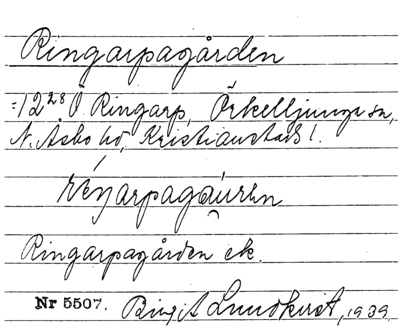 Ringarpagården
=12²⁸ Ö Ringarp, Örkelljunga sn,
N. Åsbo hd, Kristianstads l.
Ringarpagården ek.
Nr 5507. Birgit Lundkvist, 1939